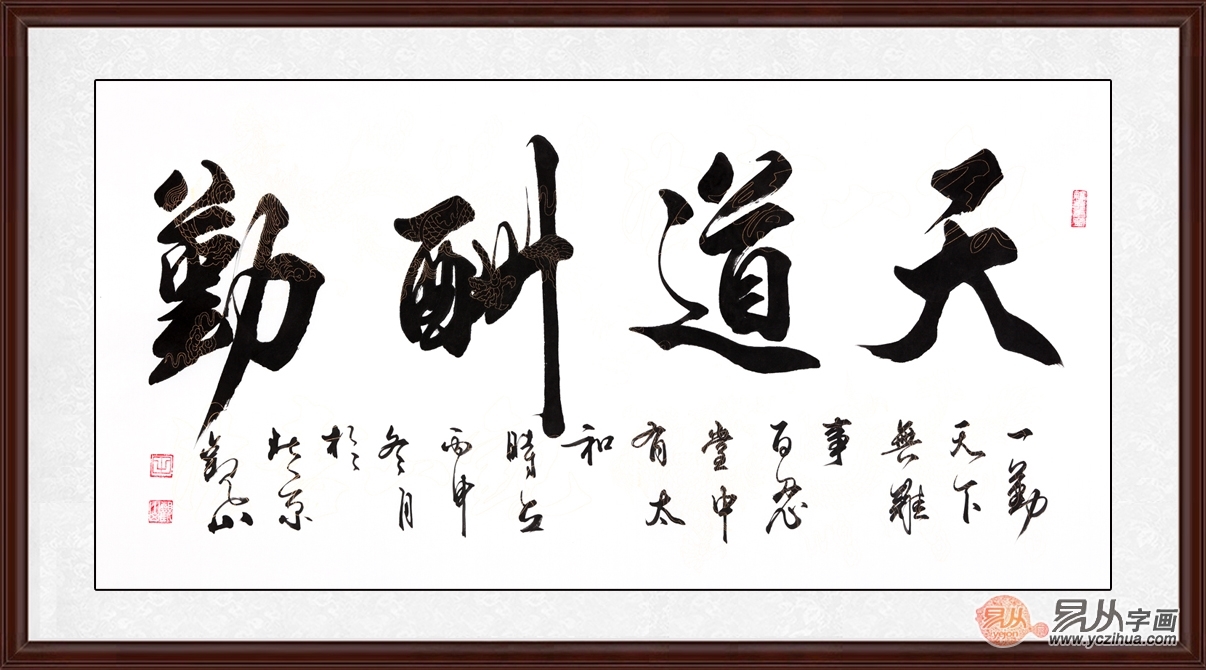 天道酬勤
一勤
天下
無難
事
百忍
堂中
有太
和
時在
丙申
冬月
於
北京
觀山
易从字画
yejon
www.yczihua.com